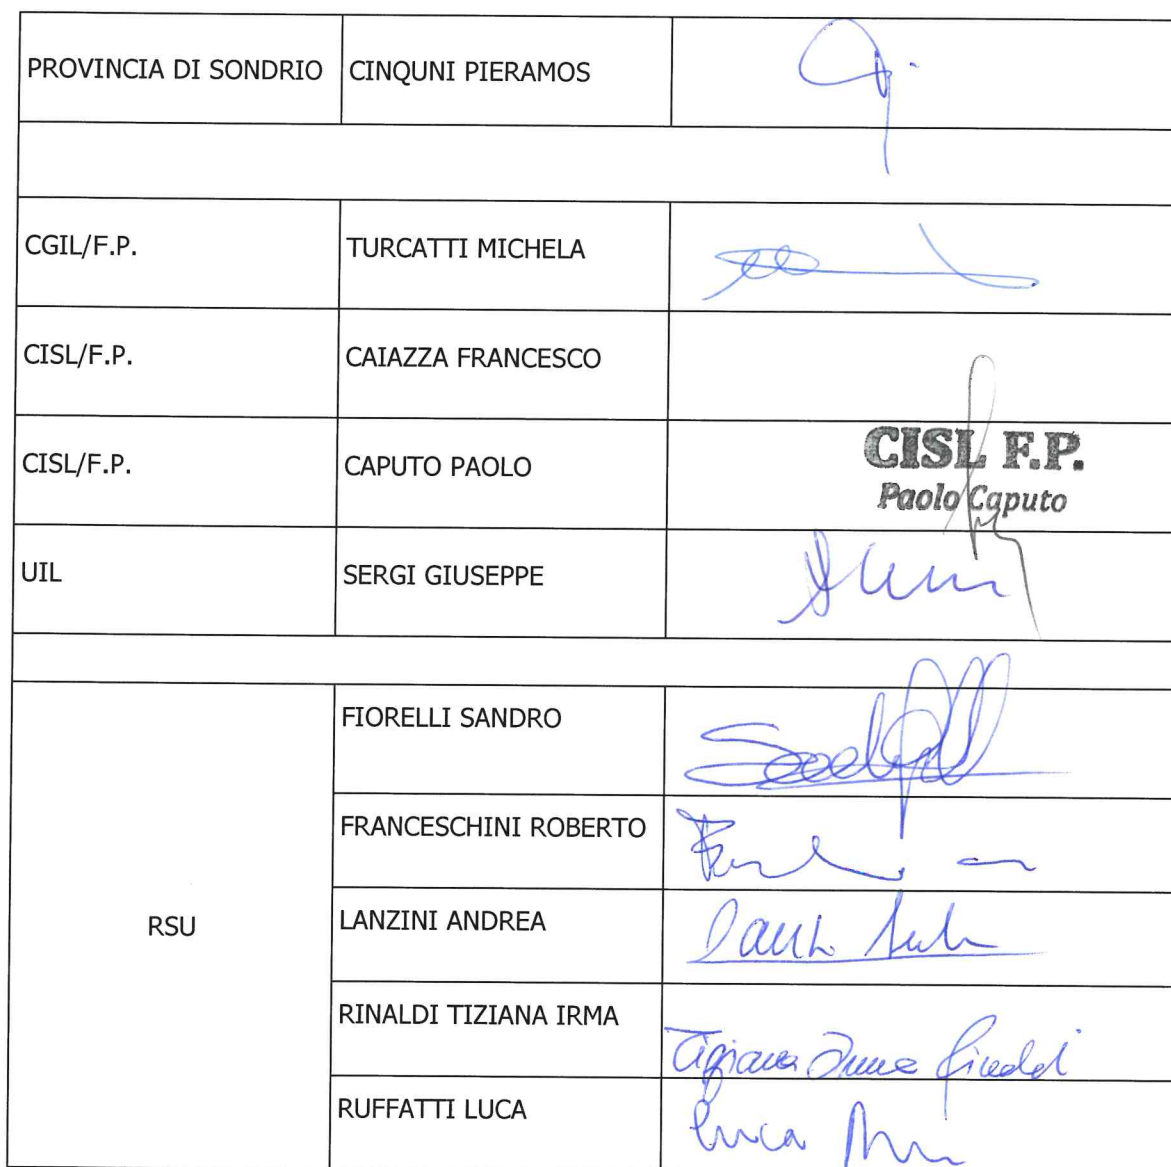 PROVINCIA DI SONDRIO CINQUNI PIERAMOS
CGIL/F.P. TURCATTI MICHELA
CISL/F.P. CAIAZZA FRANCESCO
CISL/F.P. CAPUTO PAOLO CISL F.P.
Paolo Caputo
UIL SERGI GIUSEPPE
FIORELLI SANDRO
FRANCESCHINI ROBERTO
RSU LANZINI ANDREA
RINALDI TIZIANA IRMA Tiziana Irma Rinaldi
RUFFATTI LUCA Luca